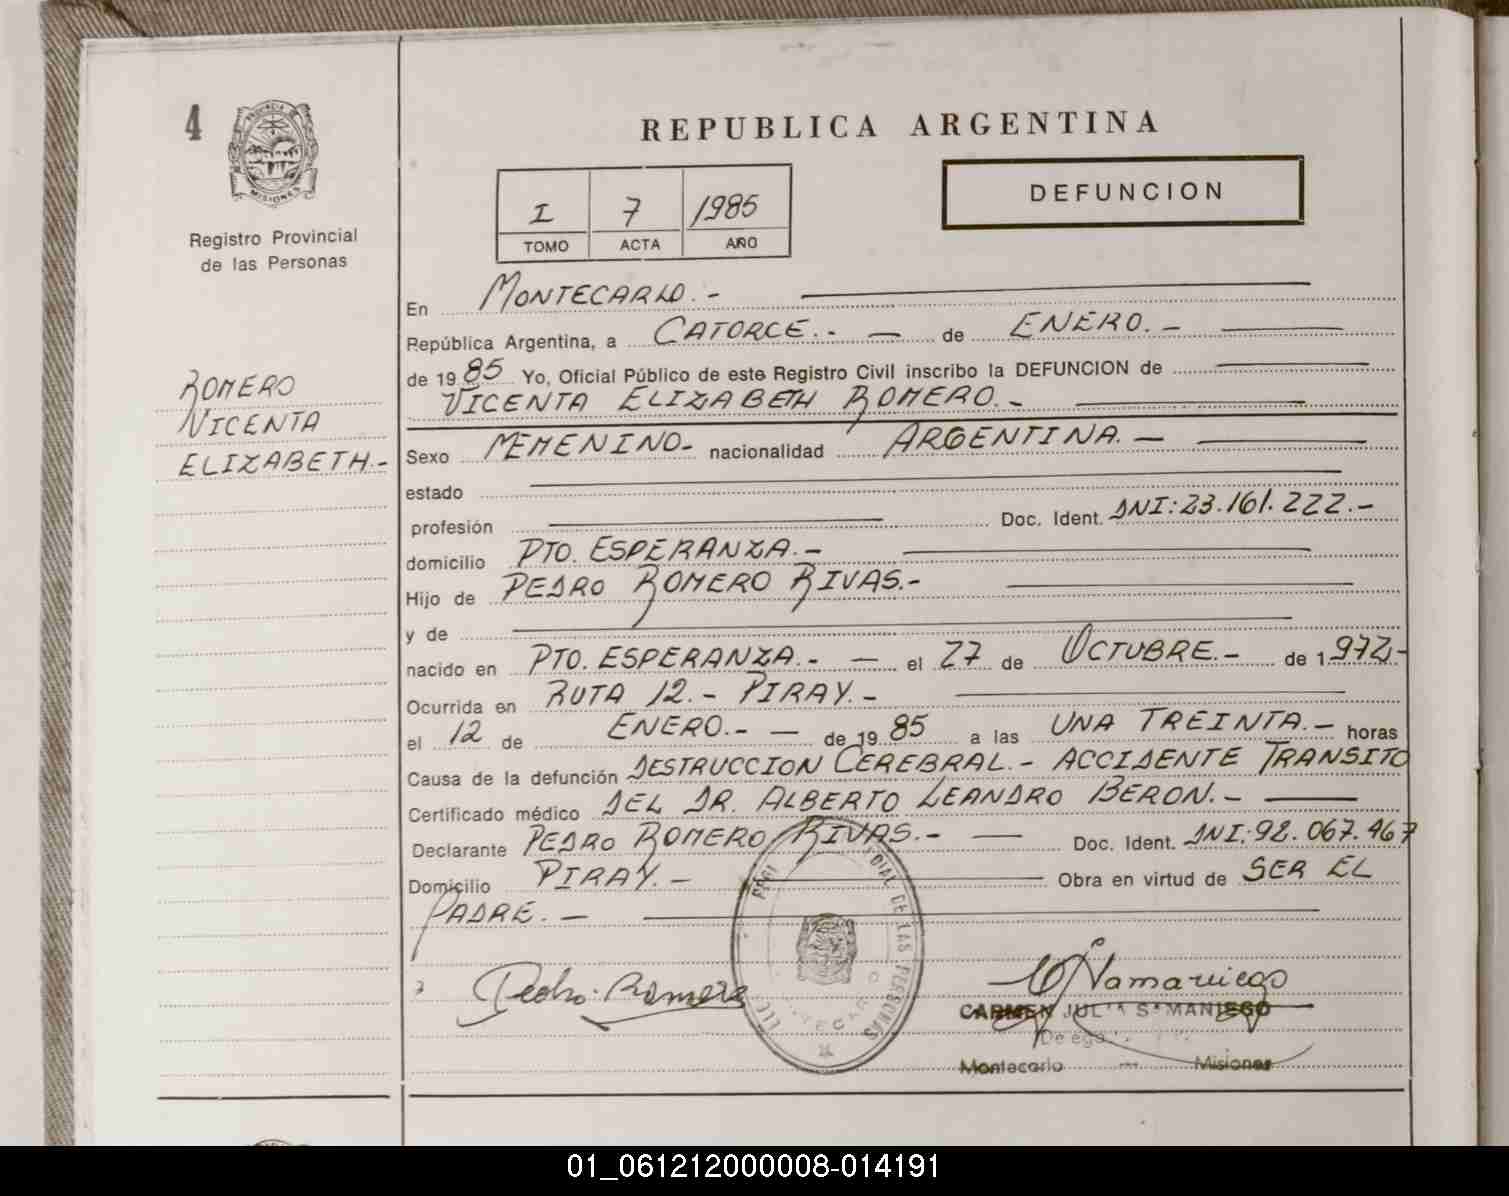 4
PROVINCIA DE
MISIONES
Registro Provincial
de las Personas
ROMERO
VICENTA
ELIZABETH.-
REPUBLICA ARGENTINA
DEFUNCION
I 7 1985
TOMO ACTA AÑO
En MONTECARLO.-
República Argentina, a CATORCE.- — de ENERO.-
de 1985 Yo, Oficial Público de este Registro Civil inscribo la DEFUNCION de
VICENTA ELIZABETH ROMERO.-
Sexo MEMENINO- nacionalidad ARGENTINA.-
estado
profesión Doc. Ident. DNI:23.161.222.-
domicilio PTO. ESPERANZA.-
Hijo de PEDRO ROMERO RIVAS.-
y de
nacido en PTO. ESPERANZA.- — el 27 de OCTUBRE.- de 1972.-
Ocurrida en RUTA 12.- PIRAY.-
el 12 de ENERO.- — de 1985 a las UNA TREINTA.- horas
Causa de la defunción DESTRUCCION CEREBRAL.- ACCIDENTE TRANSITO
Certificado médico DEL DR. ALBERTO LEANDRO BERON.-
Declarante PEDRO ROMERO RIVAS.- — Doc. Ident. DNI:92.067.467
Domicilio PIRAY.- Obra en virtud de SER EL
PADRE.-
DE LAS PERSONAS
Pedro Romero
CARMEN SAMANIEGO
Montecarlo — Misiones
01_061212000008-014191